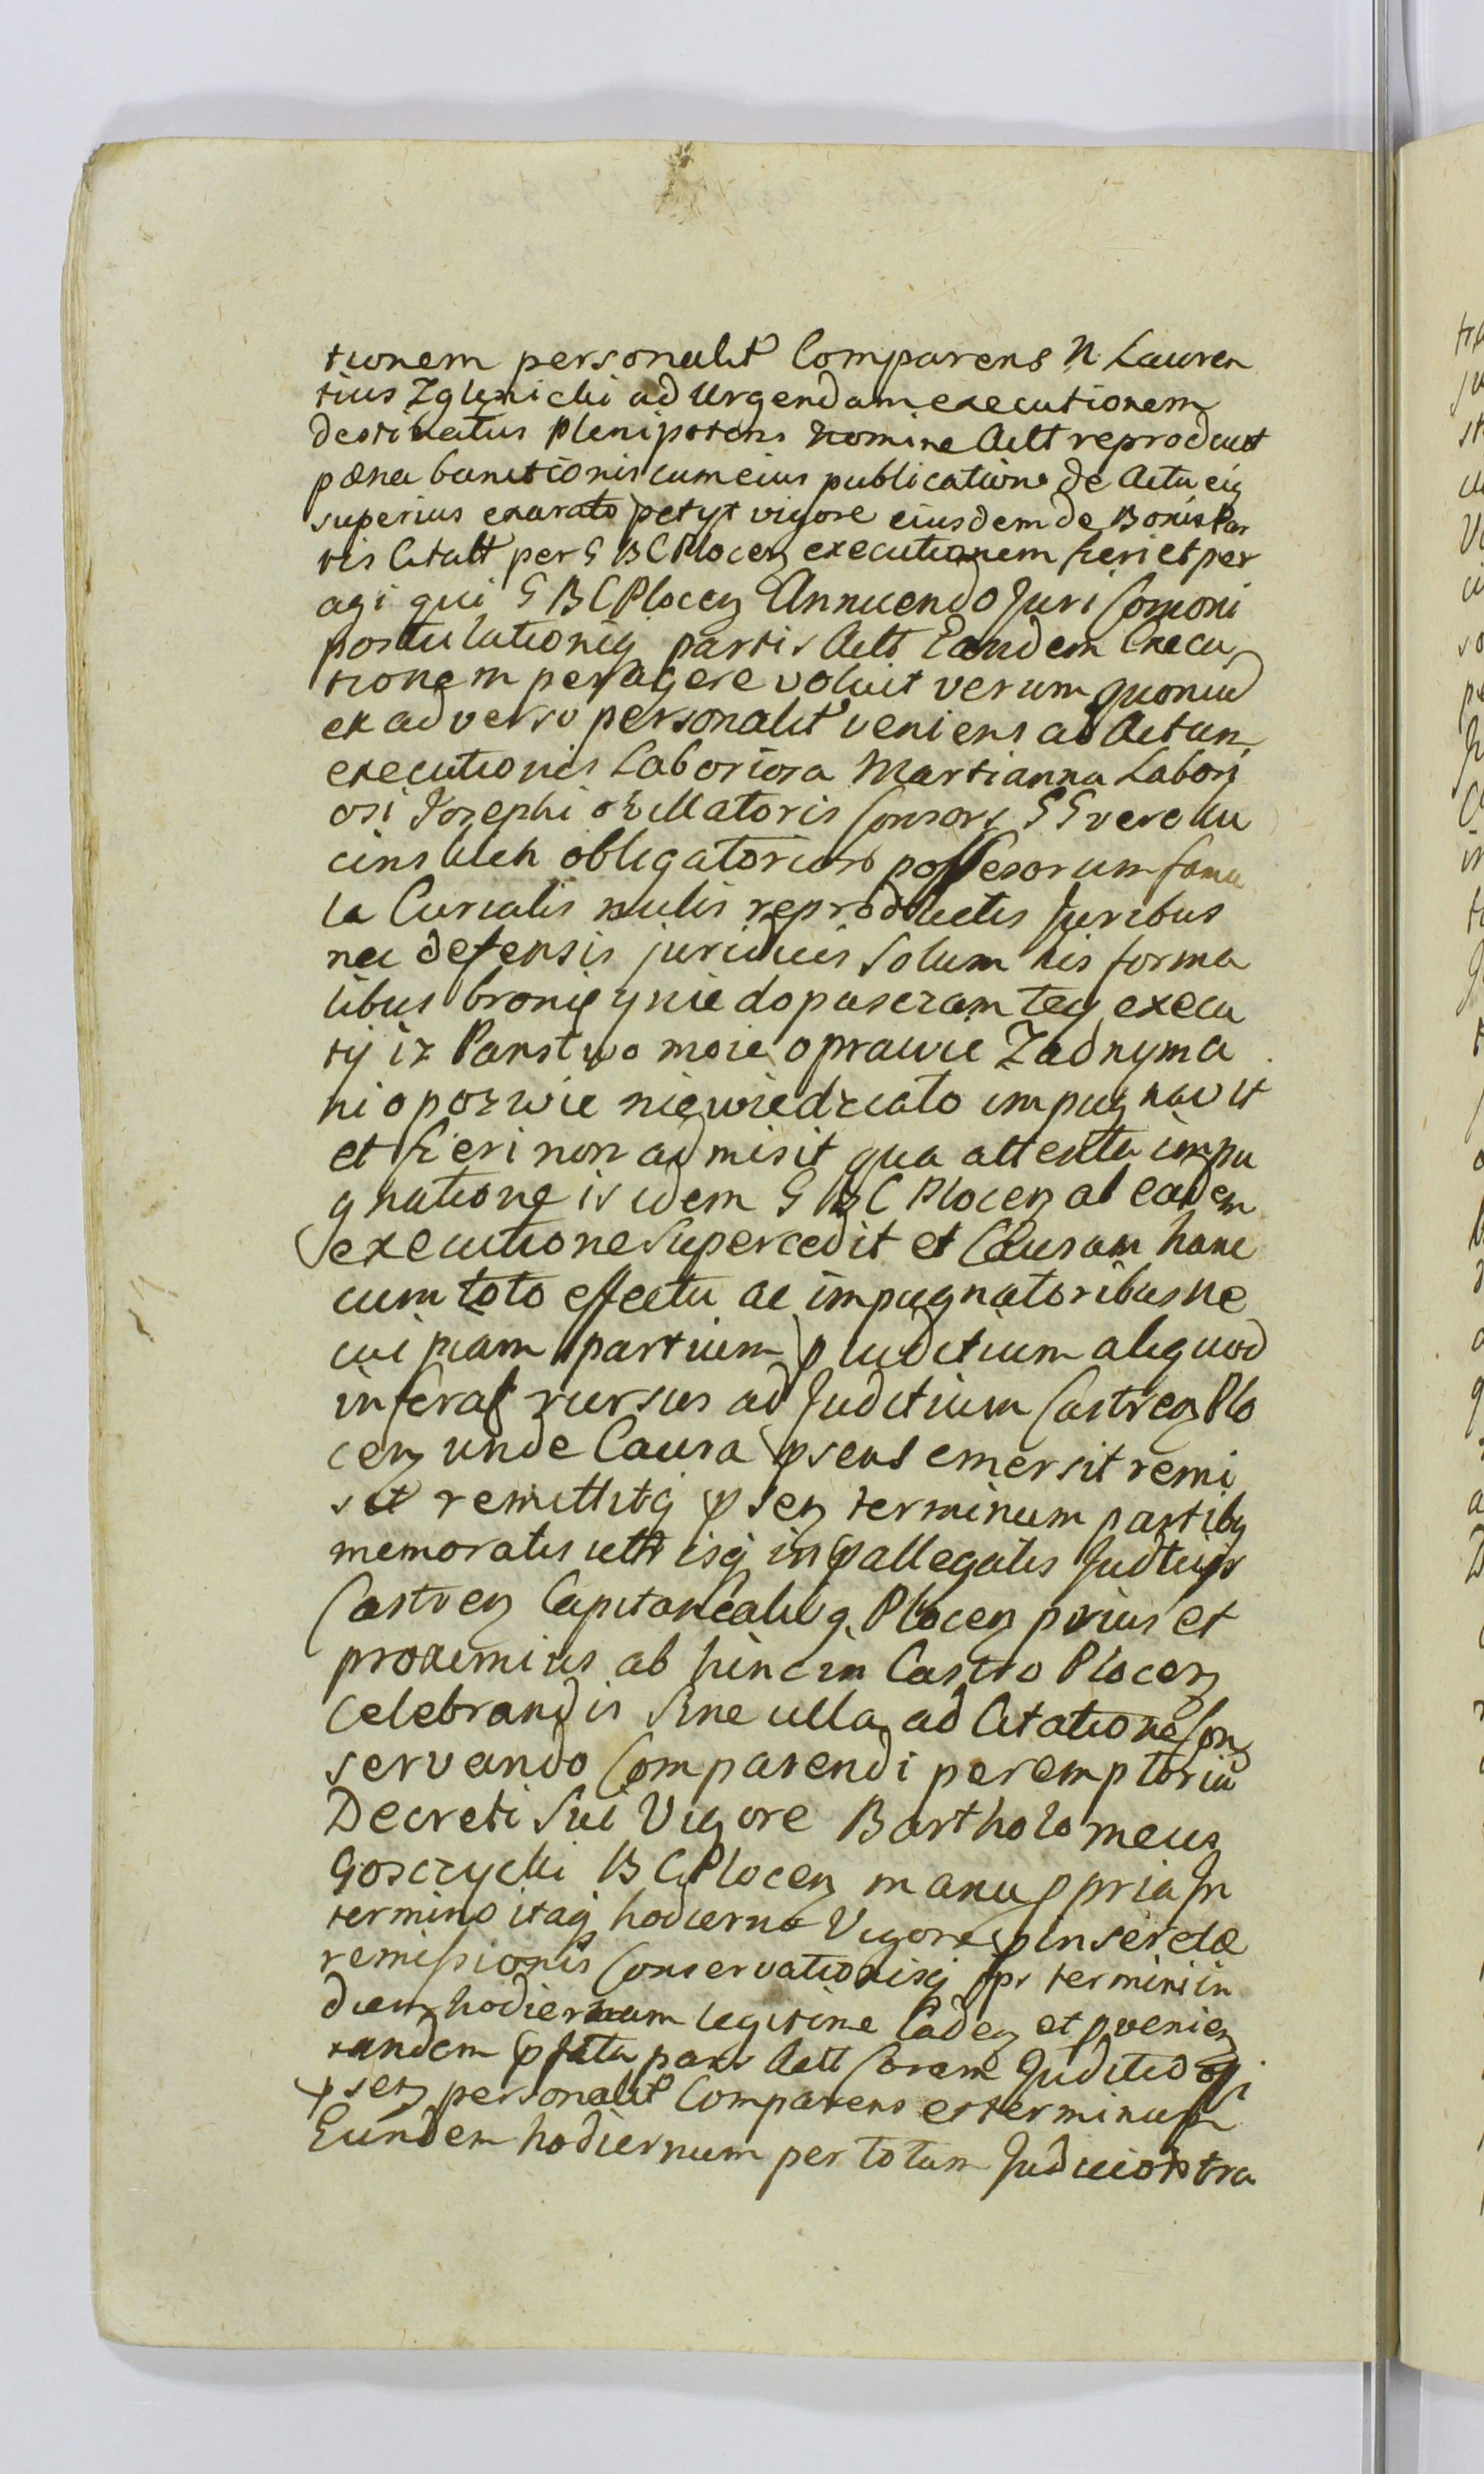 tionem personalit Comparens N Lauren
tius Zglinicki ad Urgendam executionem
destinatus Plenipotens nomine Actt reproduct
pœna banitionis cum eius publicatione de Actu eiq
superius exarato petyt vigore eiusdem de Bonis Par
tis Citatt per G B C Plocen executionem fieri et per
agi qui G B C Plocen Annuendo Juri Comoni
postulationiq partis Actt Eandem Execu
tionem peragere voluit verum quoniad
ex adverso personalit veniens ad Actum
executionis Laboriosa Martianna Labori
osi Josephi Consors GG vero
obligatorior possesorum famu
la Curialis nulis reproductis Juribus
nec defensis juridicis Solum his forma
libus bronię y nie dopuszczam tey execu
tij iz Panstwo moie o prawie Zadnym a
ni o pozwie niewiedziało impugnavit
et fieri non admisit qua attenta impu
gnatione is idem G B C Plocen ab eadem
executione Supercedit et Causam hanc
cum toto effectu ac impugnatoribus ne
cui piam partium pluditium aliquod
inferat rursus ad Juditium Castren Plo
cen unde Causa psens emersit remi
sit remittitq psen terminum partibq
memoratis utr isq in pallegatis Juditiis
Castren Capitanealibq Plocen prius et
proximius ab hinc in Castro Plocen
Celebrandis Sine ulla ad Citatione Con
servando Comparendi peremptoriu
Decreti Sui Vigore Bartholomeus
Gosczycki B C Plocen manu ppria In
termino itaq hodierno Vigore pinsertæ
remissionis Conservationisq ipr termini in
diem hodiernum legitime Caden et pvenien
tandem pfata pars Actt Coram Juditio
psen personalit Comparens et terminum
Eundem hodiernum per totum Judicior tra